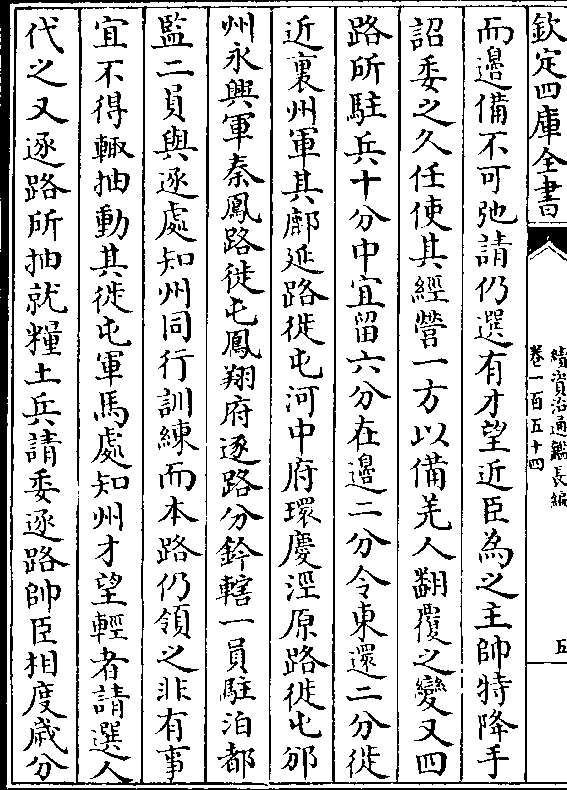 欽定四庫全書
續資治通鑑長編
卷一百五十四
五
而邊備不可弛請仍選有才望近臣為之主帥特降手
詔委之久任使其經營一方以備羌人翻覆之變又四
路所駐兵十分中宜留六分在邊二分令東還二分徙
近裏州軍其鄜延路徙屯河中府環慶涇原路徙屯邠
州永興軍秦鳳路徙屯鳳翔府逐路分鈐轄一員駐泊都
監二員與逐處知州同行訓練而本路仍領之非有事
宜不得輙抽動其徙屯軍馬處知州才望輕者請選人
代之又逐路所抽就糧土兵請委逐路帥臣相度歲分